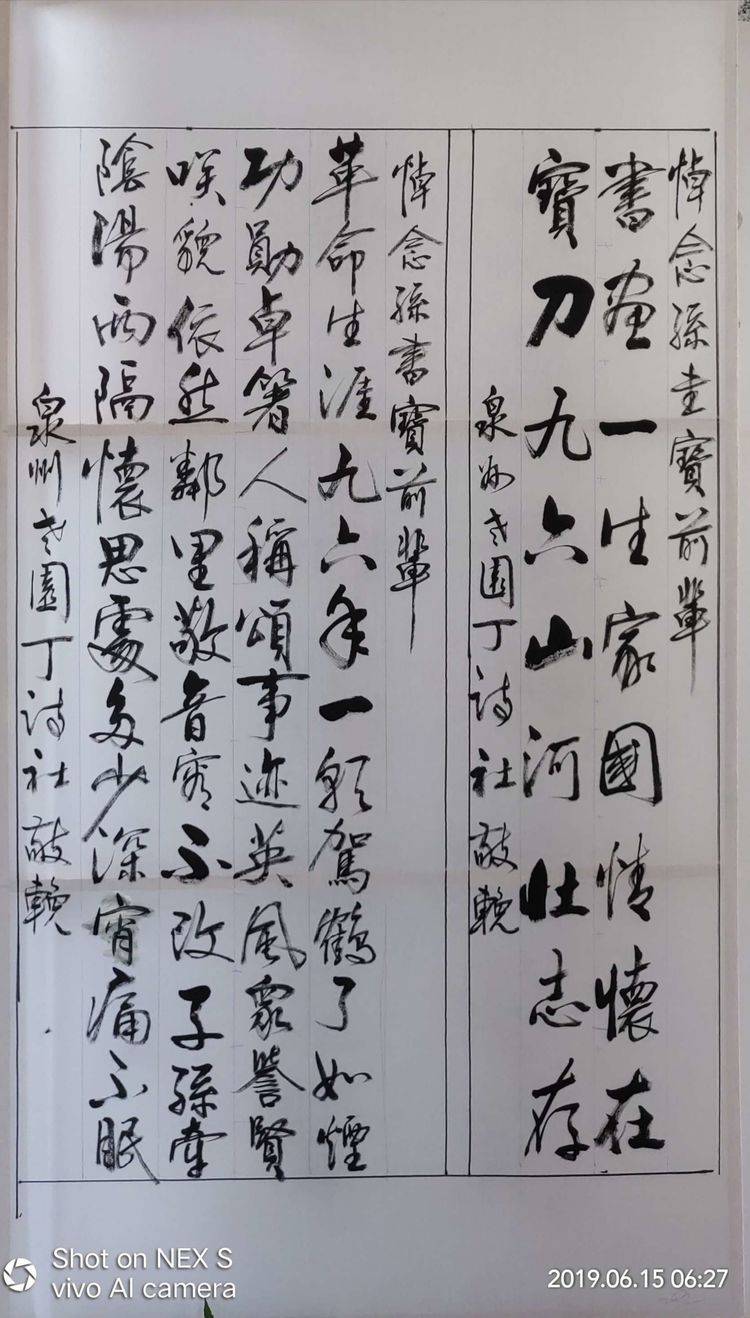 悼念孫書寶前輩
書畫一生家國情懷在
寶刀九六山河壯志存
泉州老園丁詩社敬輓
悼念孫書寶前輩
革命生涯九六年一朝駕鶴了如煙
功勛卓著人稱頌事迹英風眾譽賢
笑貌依然鄰里敬音容不改子孫牽
陰陽兩隔懷思處多少深宵痛不眠
泉州老園丁詩社敬輓
Shot on NEX S
vivo AI camera
2019.06.15 06:27